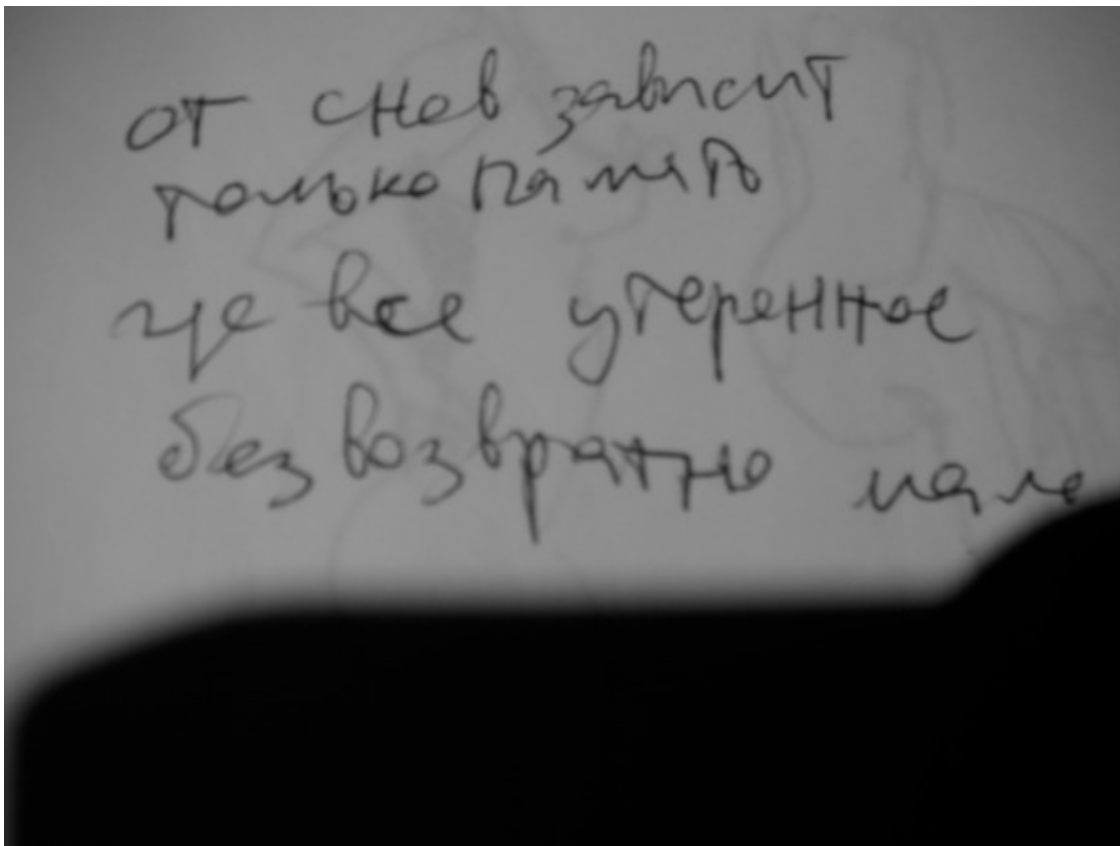 от снев зависит
только память
где все утеренное
безвозвратно